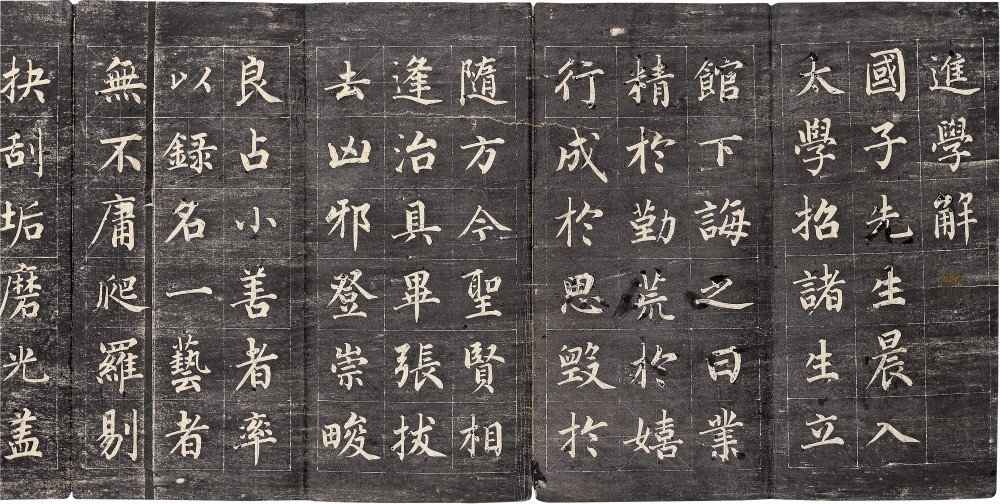 進學解
國子先生晨入
太學招諸生立
館下誨之曰業
精於勤荒於嬉
行成於思毀於
隨方今聖賢相
逢治具畢張拔
去凶邪登崇畯
良占小善者率
以録名一藝者
無不庸爬羅剔
抉刮垢磨光盖